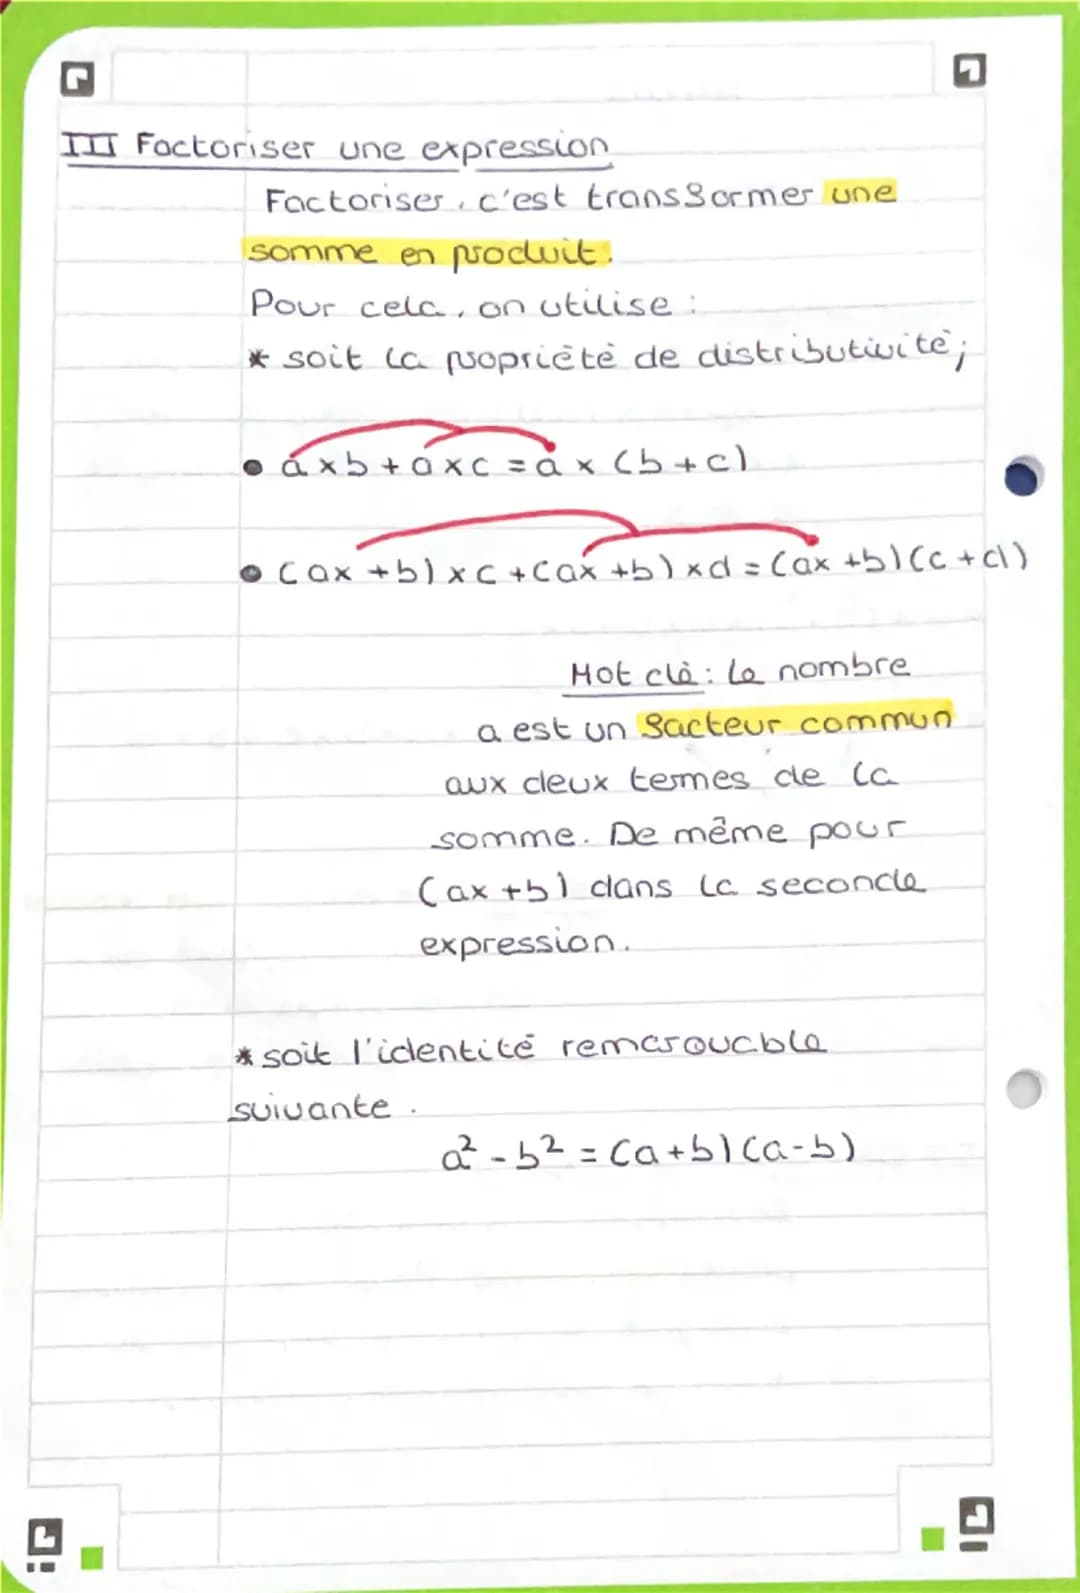 III Factoriser une expression
Factoriser, c'est transformer une
somme en produit.
Pour cela, on utilise :
* soit la propriété de distributivité;
• a×b+a×c = a × (b+c)
• (ax +b) ×c+(ax +b) ×d = (ax +b)(c+d)
Mot clè : le nombre
a est un facteur commun
aux deux termes de la
somme. De même pour
(ax +b) dans la seconde
expression.
* soit l'identité remarquable
suivante.
a² - b² = (a+b)(a-b)